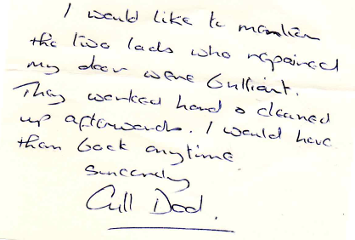 I would like to mention
the two lads who repaired
my door were brilliant.
They worked hard & cleaned
up afterwards. I would have
them back anytime
Sincerely